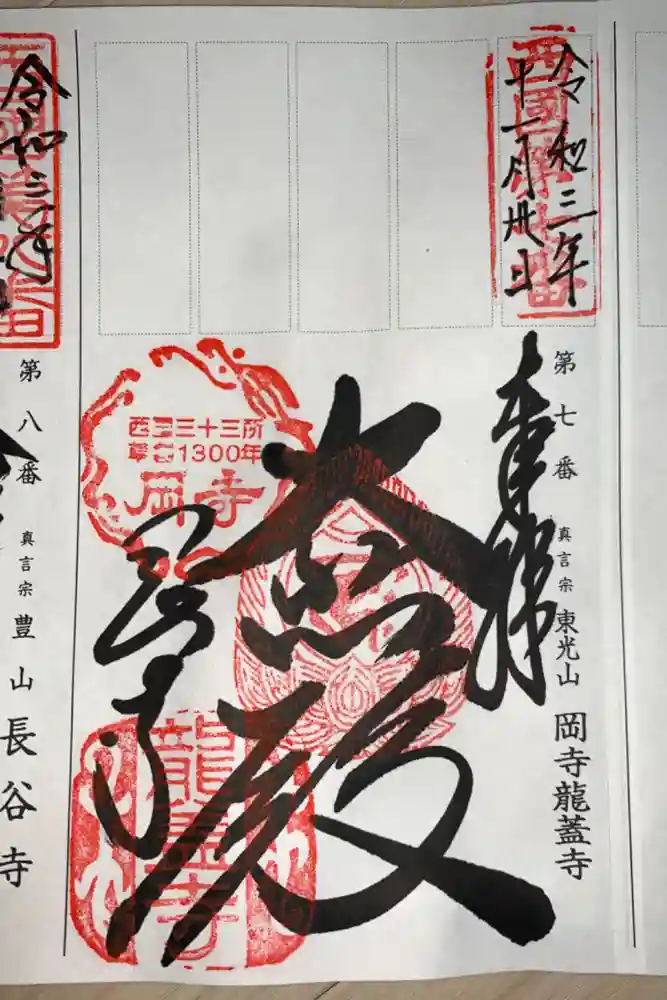 令和三年
十一月卅日
西國第七番
奉拝
第七番 真言宗 東光山 岡寺龍蓋寺
大悲殿
西国三十三所
草創1300年
岡寺
岡寺
龍蓋寺
令和三年
第八番 真言宗 豊山 長谷寺